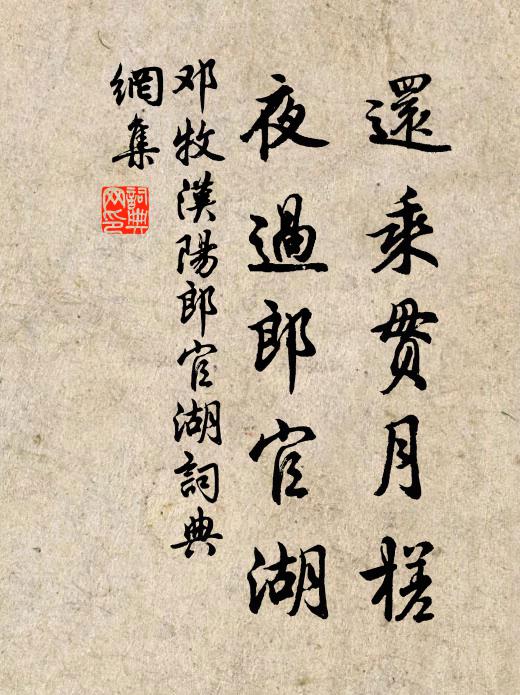 還乘貫月槎
夜過郎官湖
邓牧漢陽郎官湖詞典
網集
詞典
网印